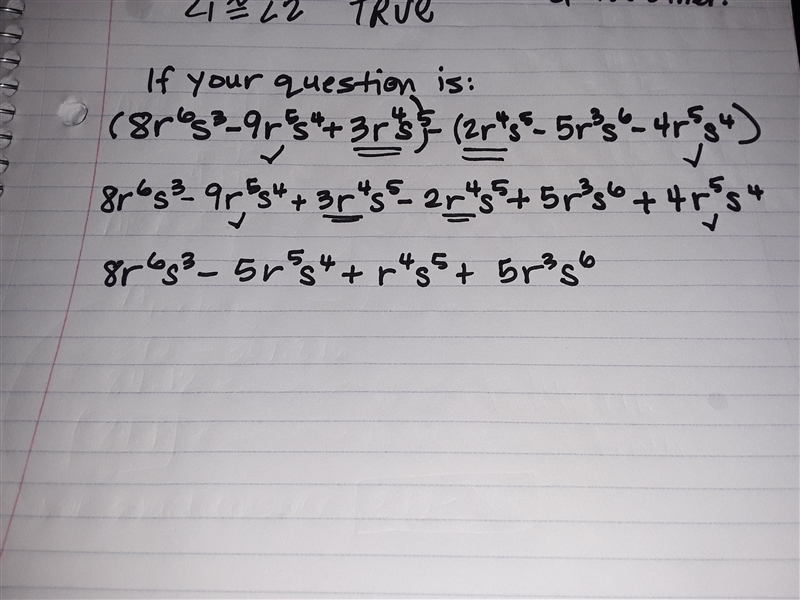 ∠1 ≅ ∠2 TRUE
If your question is:
(8r⁶s³-9r⁵s⁴+3r⁴s⁵)-(2r⁴s⁵-5r³s⁶-4r⁵s⁴)
8r⁶s³-9r⁵s⁴+3r⁴s⁵-2r⁴s⁵+5r³s⁶+4r⁵s⁴
8r⁶s³-5r⁵s⁴+r⁴s⁵+5r³s⁶